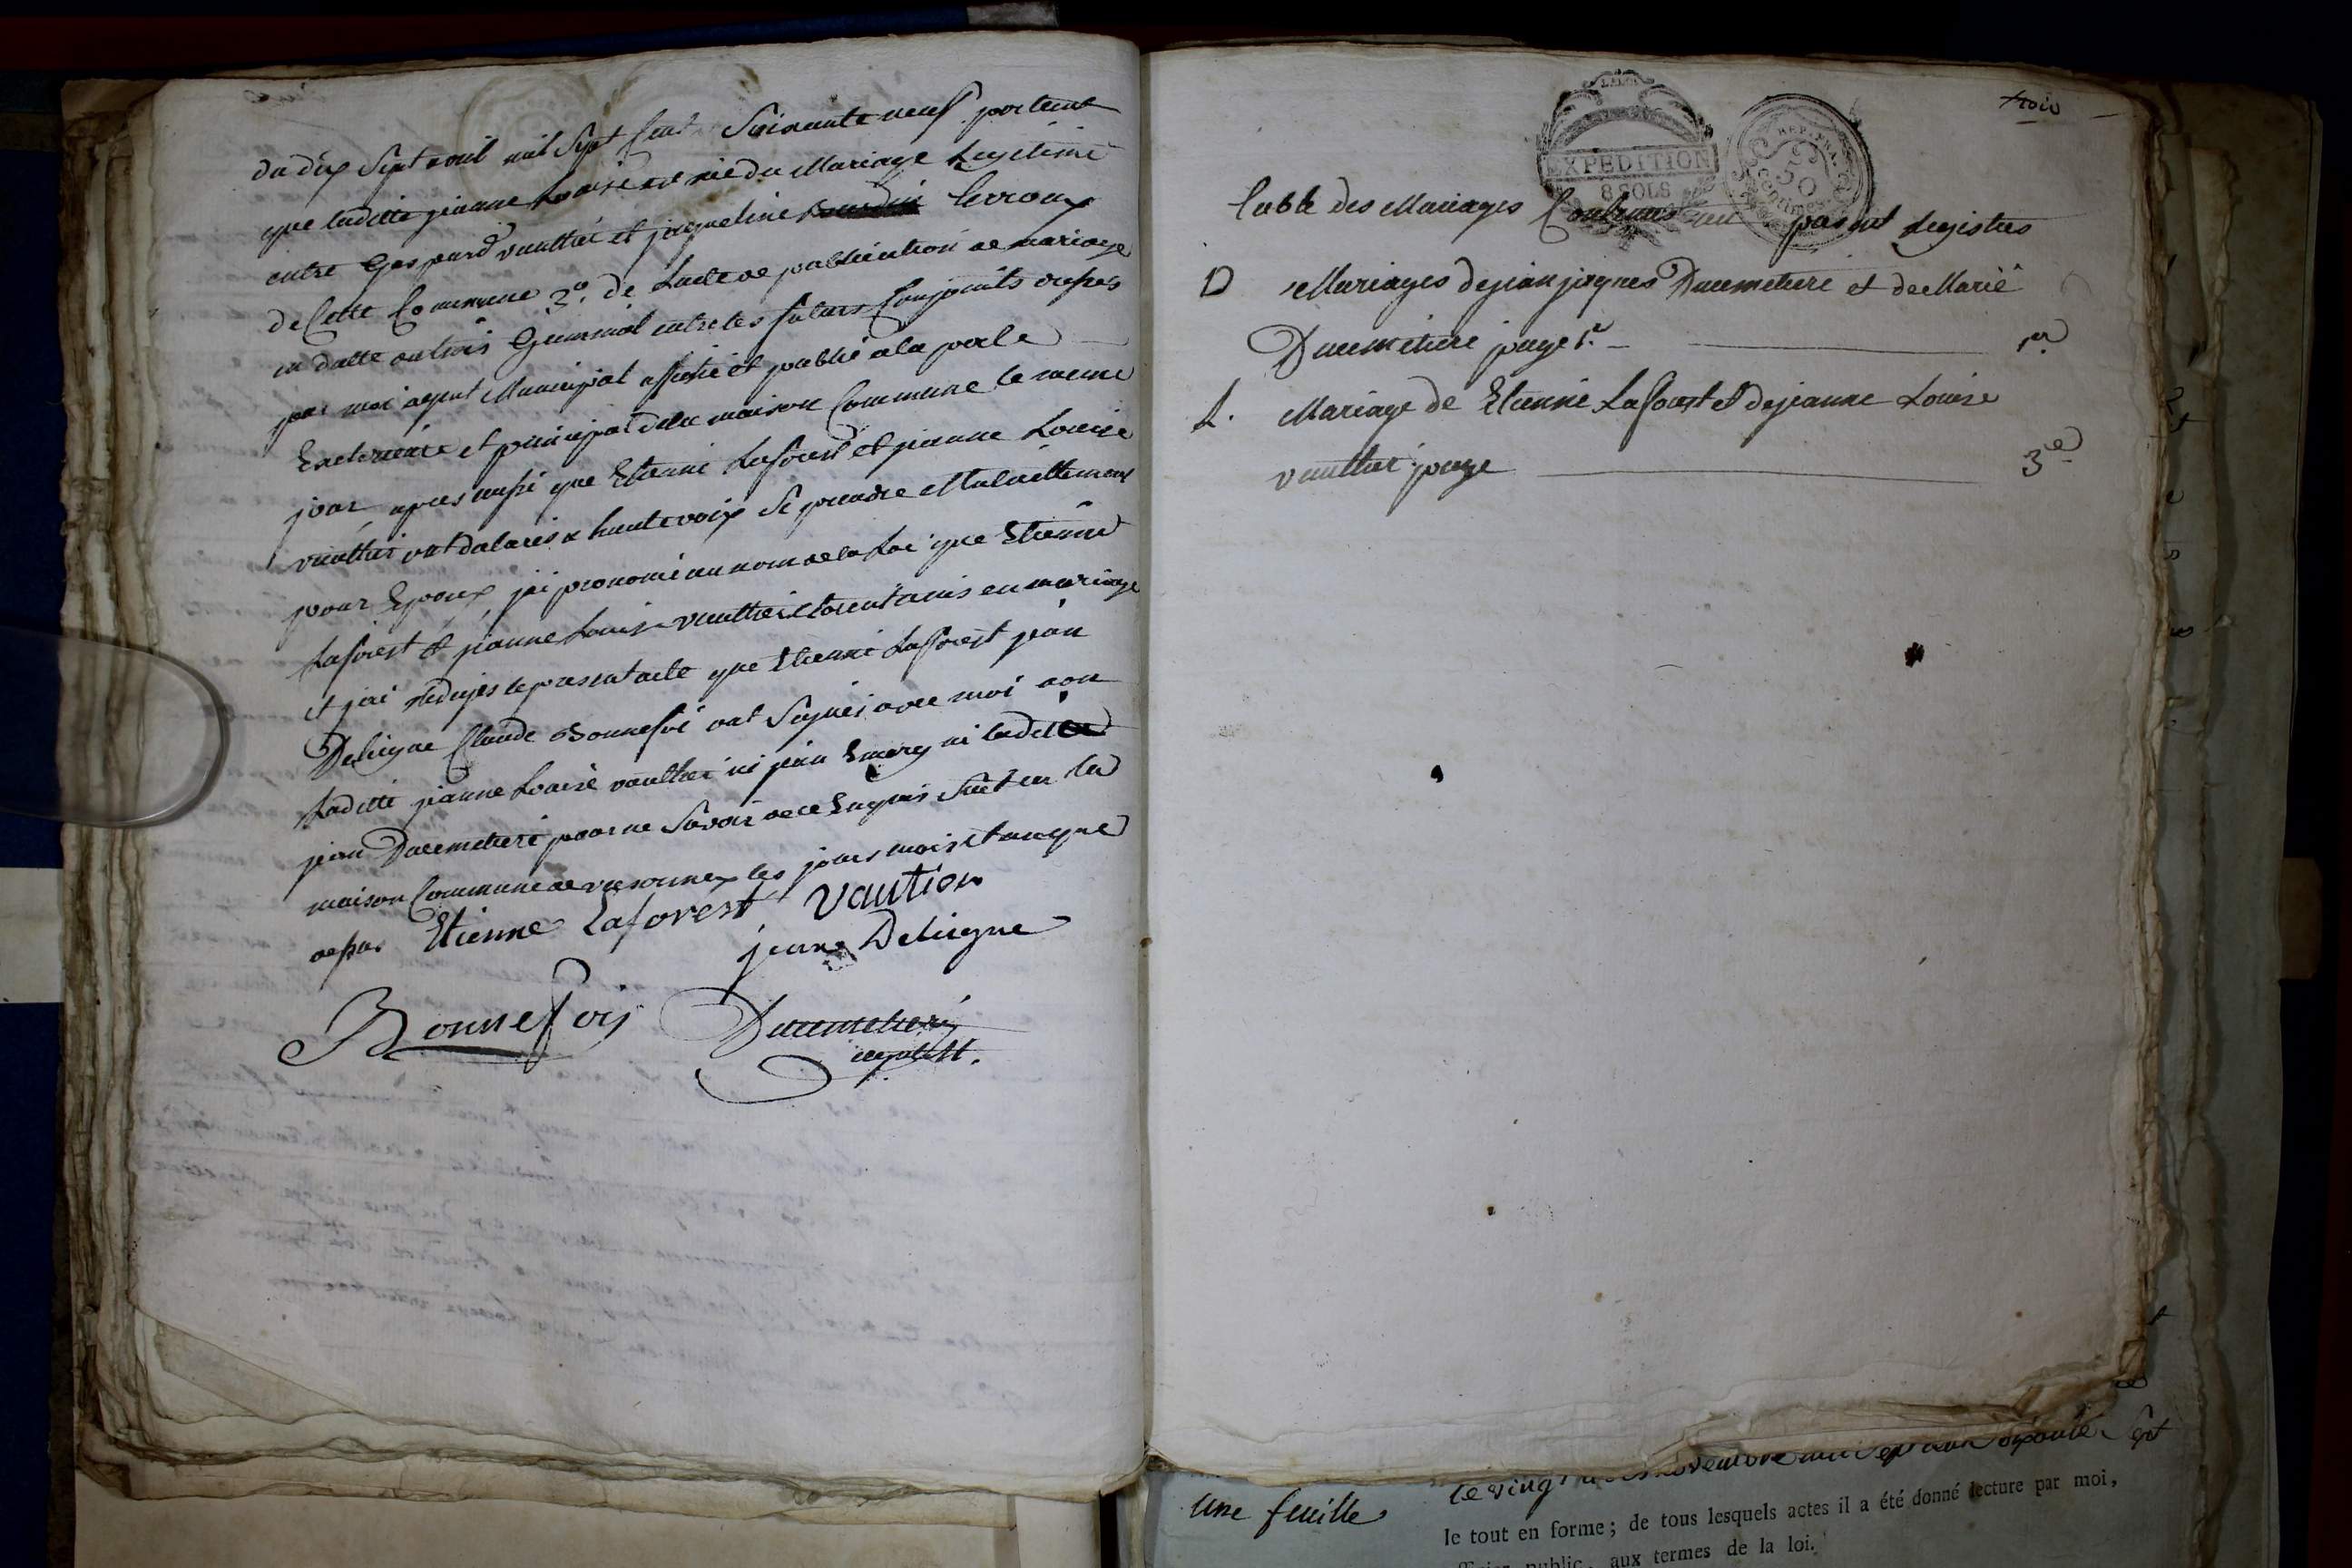 du dix Sept avril mil Sept Cent Soixante neuf portant
que laditte jeanne Louise est née du Mariage Legitime
entre Gaspard vauthier et jaqueline Levroux
de Cette Commune 3.o de Lacte de publication de mariage
en datte du trois Germinal entre les futurs Conjoints
par moi agent Municipal affiché et publié a la porte
Exterieure et principal dela maison Commune le meme
jour apres aussi que Etienne Laforest et jeanne Louise
vauthier ont declarés a haute voix Se prendre Mutuellement
pour Epoux, jai prononcé au nom de la Loi que Etienne
Laforest et jeanne Louise vauthier etoient unis en mariage
et jai rediges le present acte que Etienne Laforest jean
Deligne Claude Bonnefoi ont Signés avec moi non
Laditte jeanne Louise vauthier ni jean Emery ni
jean Ducimetiere pour ne Savoir de ce Enquis fait en la
maison Commune de les jours mois et an que
dessus Etienne Laforest Vautier
jean Deligne
Bonnefois Ducimetiere
agent
trois
EXPEDITION
8 SOLS
REP. FRA.
50
Centimes
Table des Mariages Contenus au present Registres
D Mariages de jean jaques Ducimetiere et de Marie
Ducimetiere page 1.r 1.er
L. Mariage de Etienne Laforest et de jeanne Louise
vauthier page 3.e
Une feuille
le vingt novembre Sept
le tout en forme; de tous lesquels actes il a été donné lecture par moi,
public, aux termes de la loi.